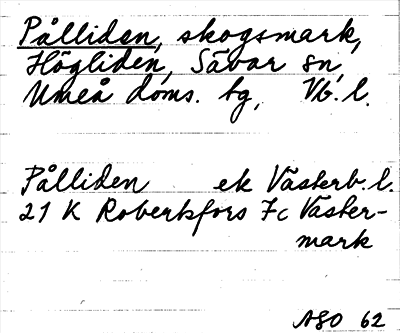 Pålliden, skogsmark,
Högliden, Sävar sn,
Umeå doms. bg, Vb. l.
Pålliden ek Västerb. l.
21 K Robertsfors 7c Väster-
mark
ASO 62